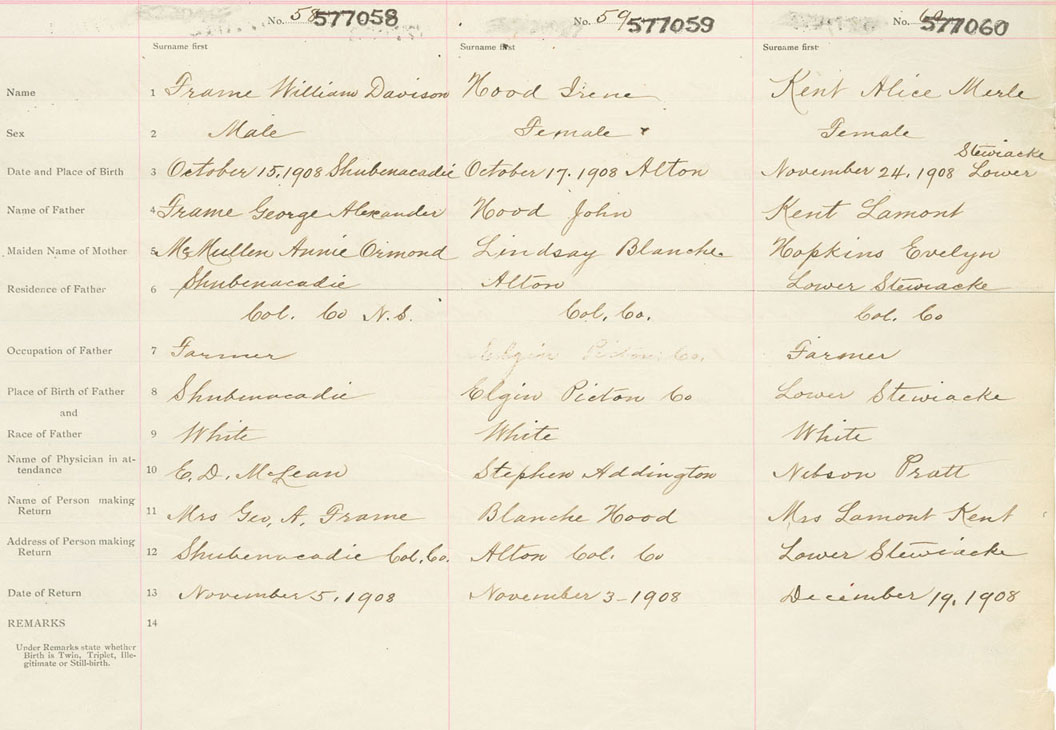 No. 58 577058 No. 59 577059 No. 60 577060
Surname first Surname first Surname first
Name 1 Frame William Davison Hood Irene Kent Alice Merle
Sex 2 Male Female Female
Stewiacke
Date and Place of Birth 3 October 15, 1908 Shubenacadie October 17. 1908 Alton November 24, 1908 Lower
Name of Father 4 Frame George Alexander Hood John Kent Lamont
Maiden Name of Mother 5 McMullen Annie Ormond Lindsay Blanche Hopkins Evelyn
Residence of Father 6 Shubenacadie Alton Lower Stewiacke
Col. Co N.S. Col. Co. Col. Co
Occupation of Father 7 Farmer Elgin Picton Co. Farmer
Place of Birth of Father 8 Shubenacadie Elgin Picton Co Lower Stewiacke
and
Race of Father 9 White White White
Name of Physician in at-
tendance 10 E. D. McLean Stephen Addington Nelson Pratt
Name of Person making
Return 11 Mrs Geo, A, Frame Blanche Hood Mrs Lamont Kent
Address of Person making
Return 12 Shubenacadie Col. Co. Alton Col. Co Lower Stewiacke
Date of Return 13 November 5, 1908 November 3-1908 December 19, 1908
REMARKS 14
Under Remarks state whether
Birth is Twin, Triplet, Ille-
gitimate or Still-birth.